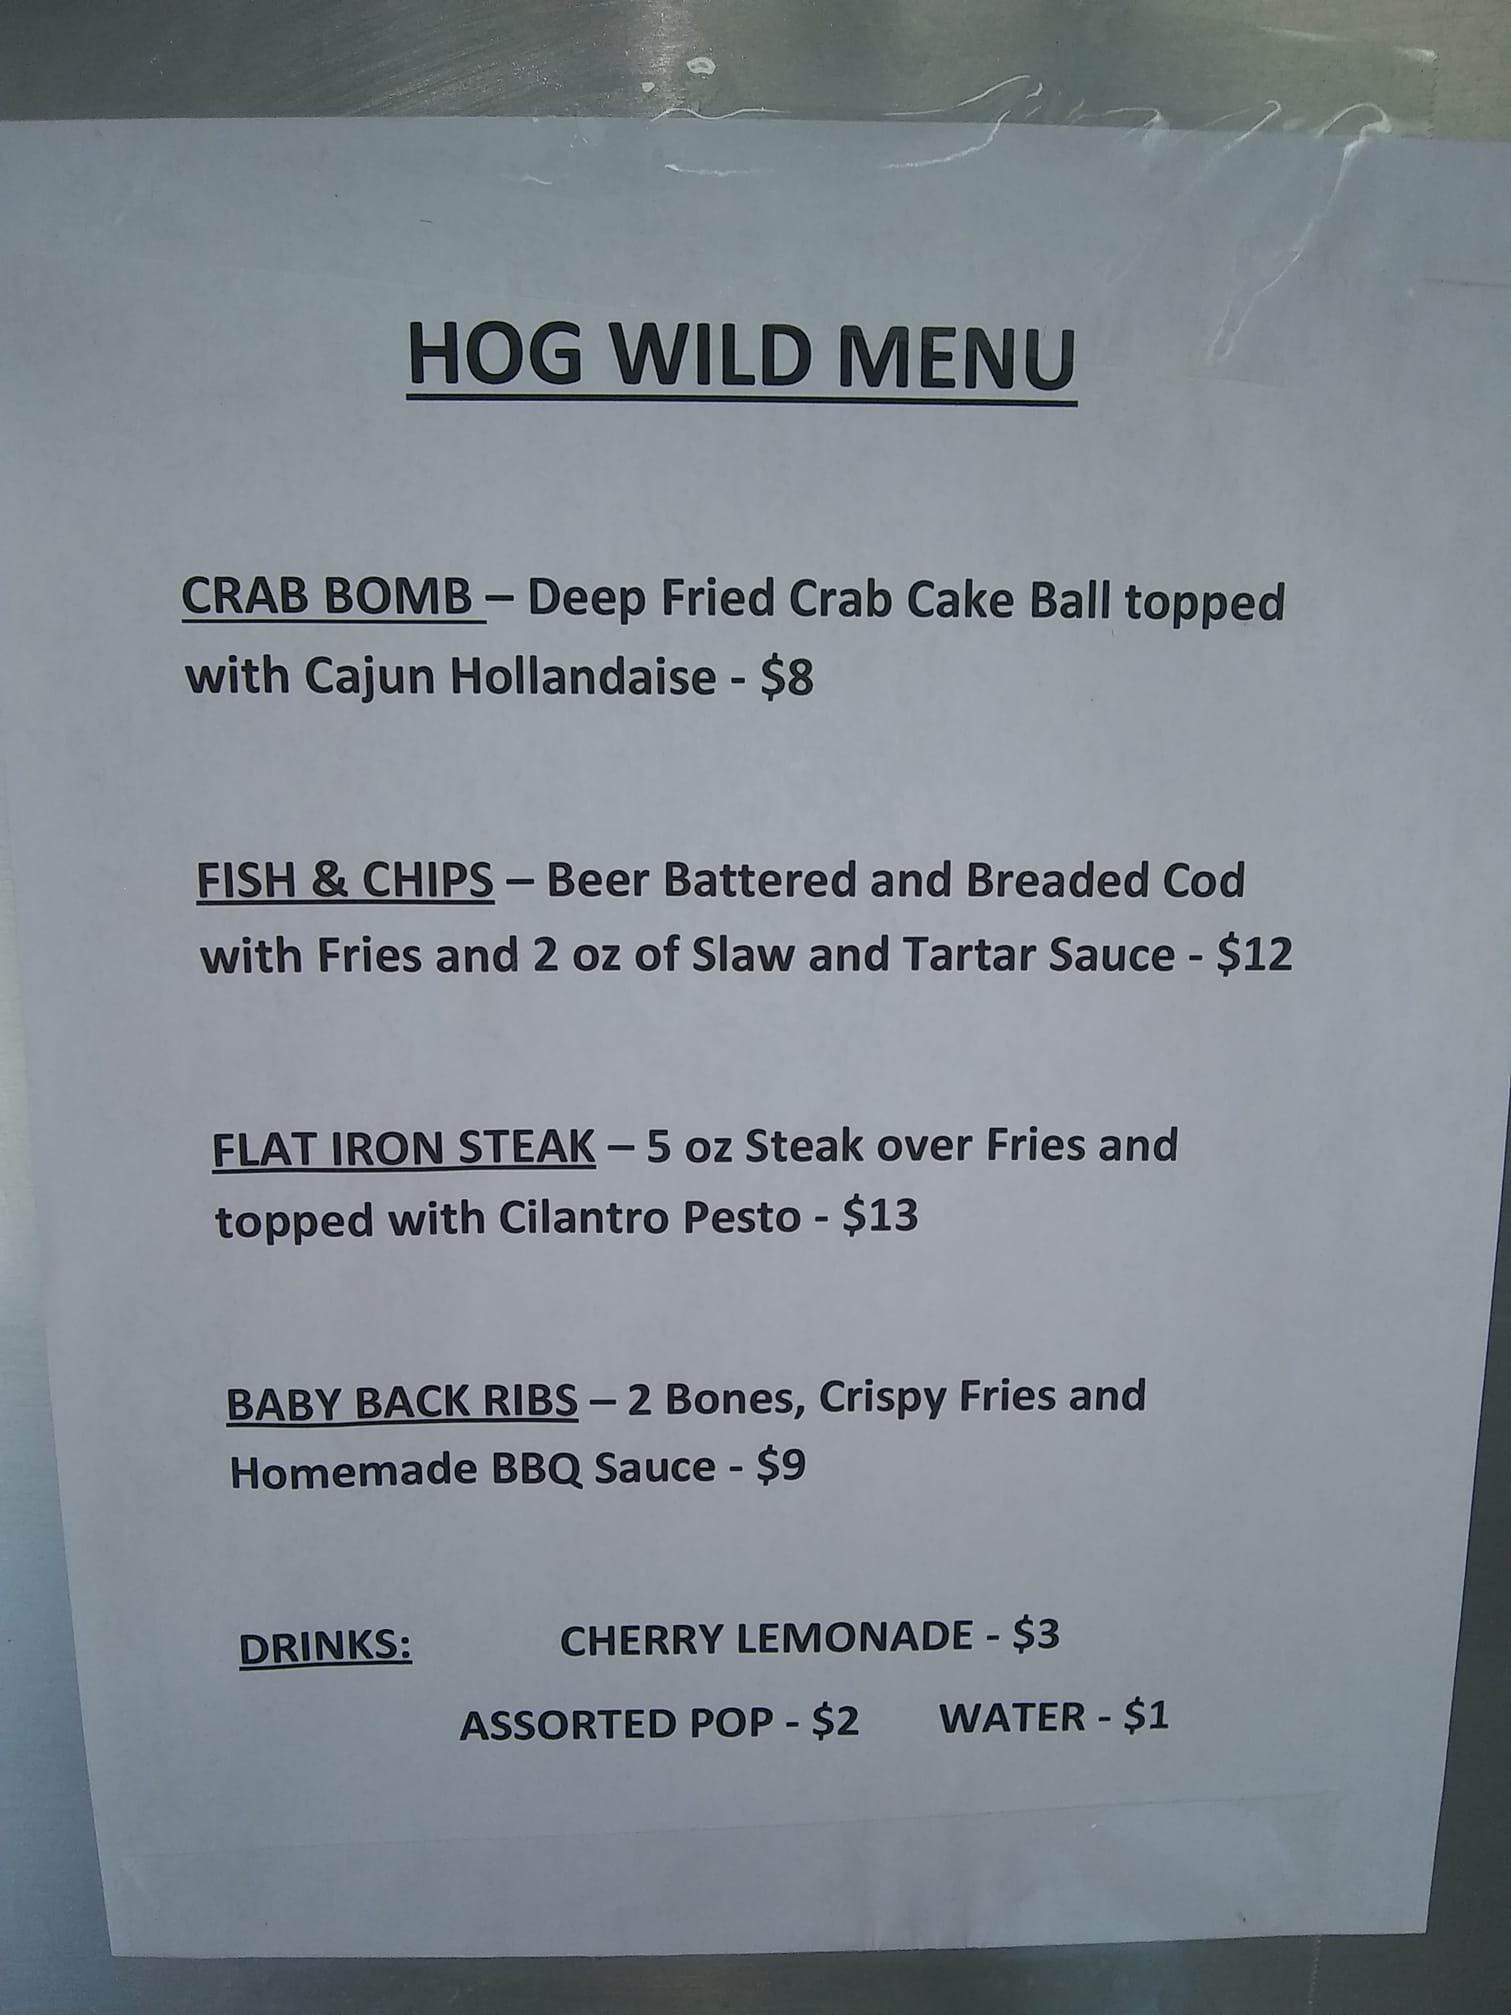 HOG WILD MENU
CRAB BOMB – Deep Fried Crab Cake Ball topped
with Cajun Hollandaise - $8
FISH & CHIPS – Beer Battered and Breaded Cod
with Fries and 2 oz of Slaw and Tartar Sauce - $12
FLAT IRON STEAK – 5 oz Steak over Fries and
topped with Cilantro Pesto - $13
BABY BACK RIBS – 2 Bones, Crispy Fries and
Homemade BBQ Sauce - $9
DRINKS: CHERRY LEMONADE - $3
ASSORTED POP - $2 WATER - $1